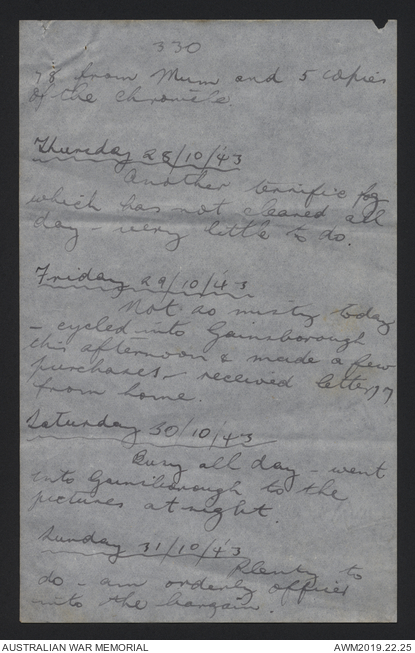 330
78 from Mum and 5 copies
of the Chronicle.
Thursday 28/10/43
Another terrific fog
which has not cleared all
day - very little to do.
Friday 29/10/43
Not so misty today
- cycled into Gainsborough
this afternoon & made a few
purchases - received letter 77
from home.
Saturday 30/10/43
Busy all day - went
into Gainsborough to the
pictures at night.
Sunday 31/10/43
Plenty to
do - am orderly officer
into the bargain.
AUSTRALIAN WAR MEMORIAL
AWM2019.22.25